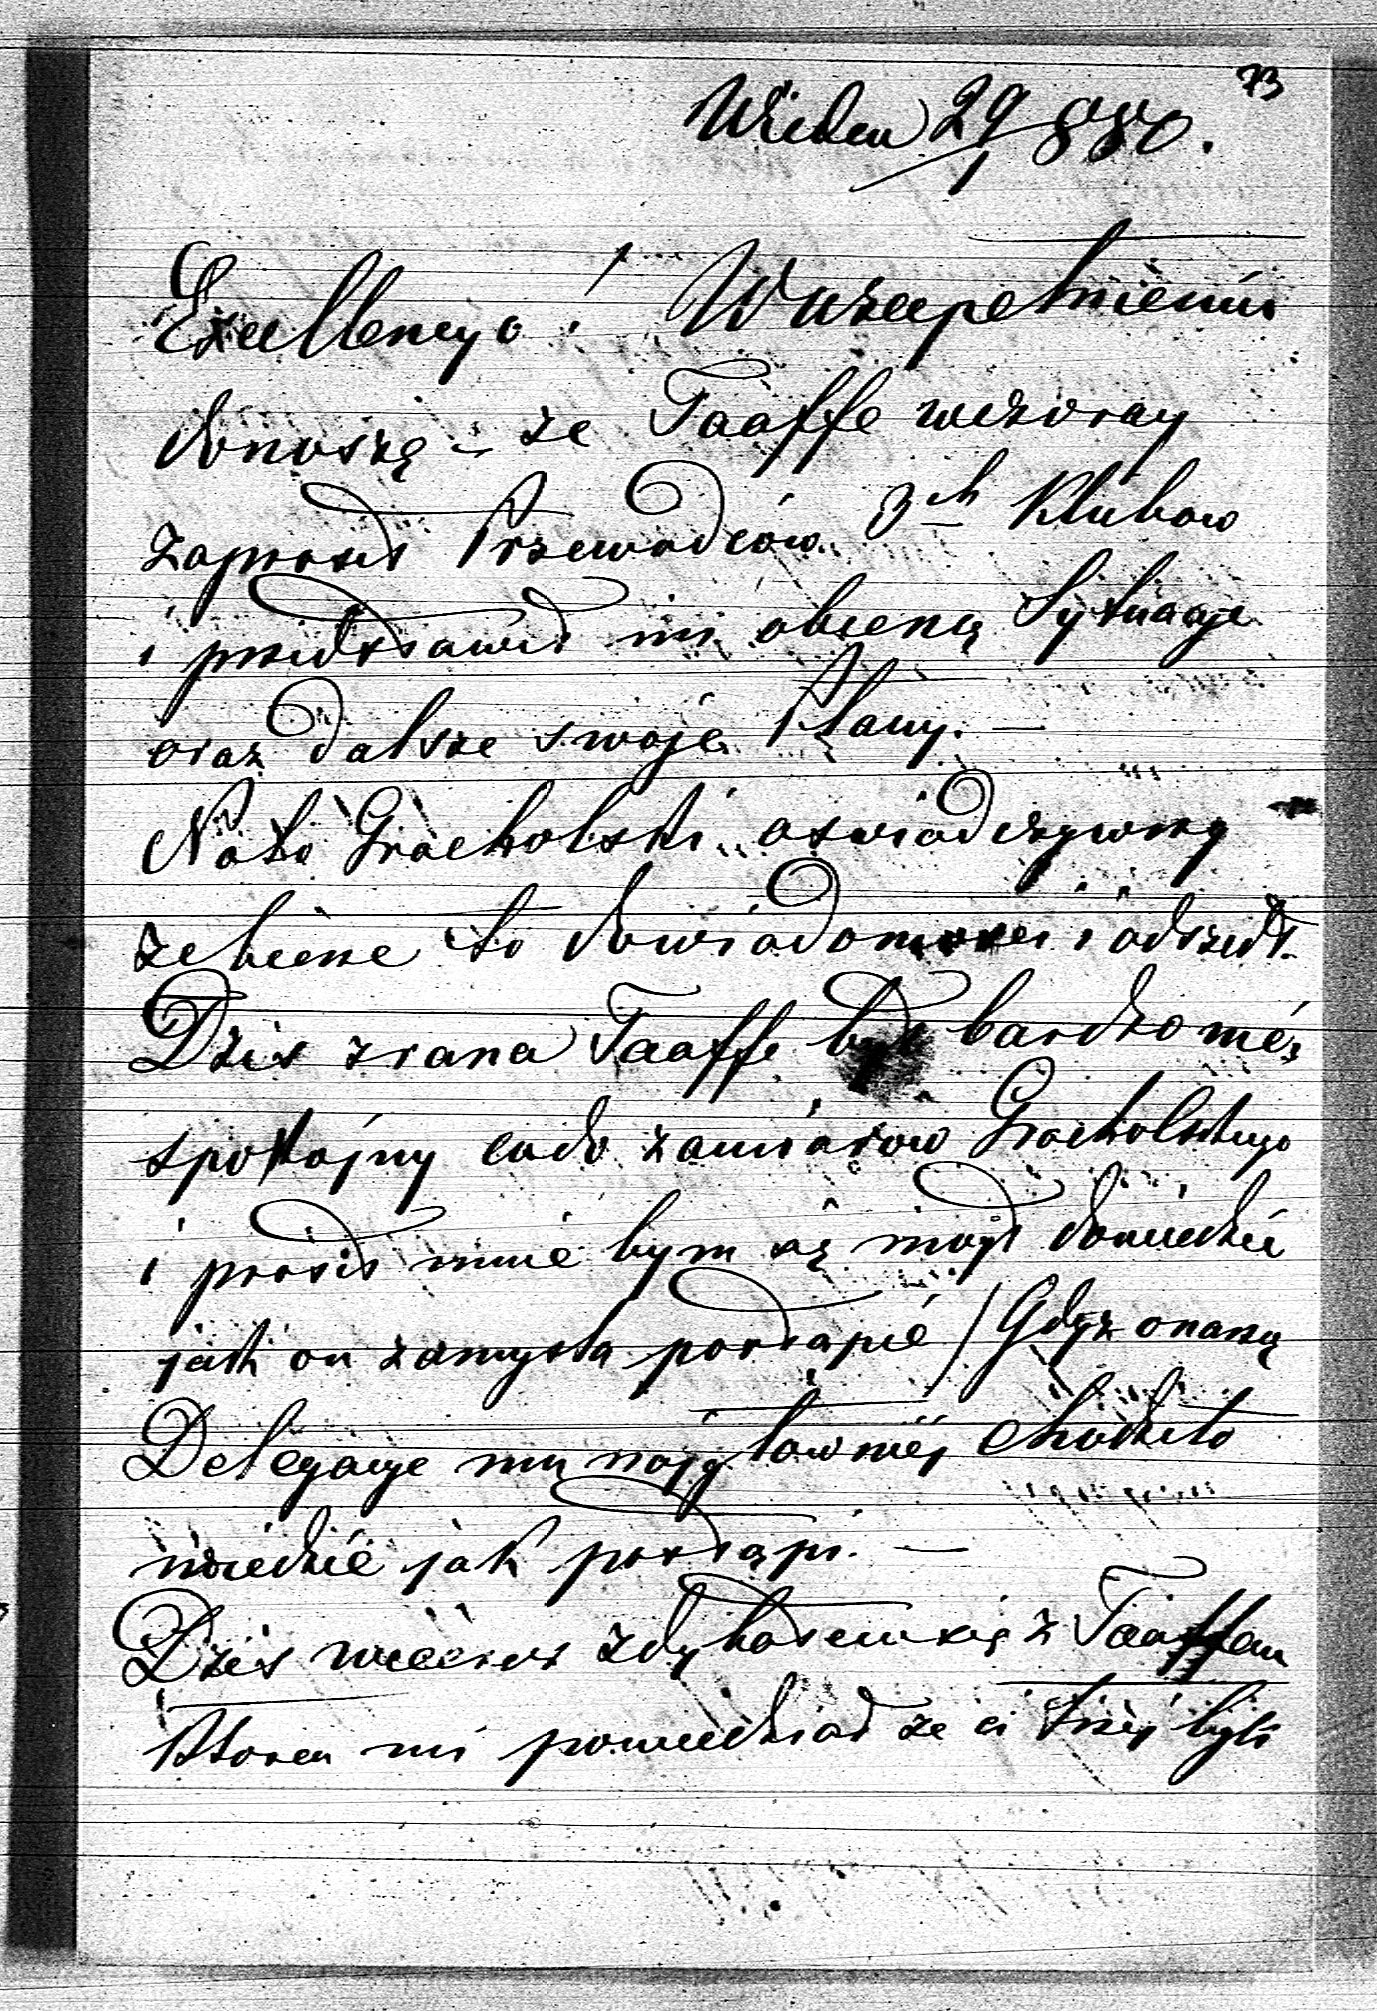 73
Wiedeń 29/1 880.
Excellencyo! W uzupełnieniu
donoszę – że Taaffe wczoraj
zaprosił Przewodców 3ch Klubow
i przedstawił im obecną Sytuacye
oraz dalsze swoje Plany. —
Nato Grocholski oświadczywszy
ze bierze to dowiadomosci i odszedł.
Dzis zrana Taaffe był bardzo nie,
spokojny codo zamiarow Grocholskiego
i prosił mnie bym się mógł dowiedzieć
jak on zamysla postapić / Gdyż onaszą
Delegacye mu najgłowniej chodziło
wiedzieć jak postąpi. —
Dzis wieczor zdybałem się z Taaffem
ktoren mi powiedział ze ci trzej byli